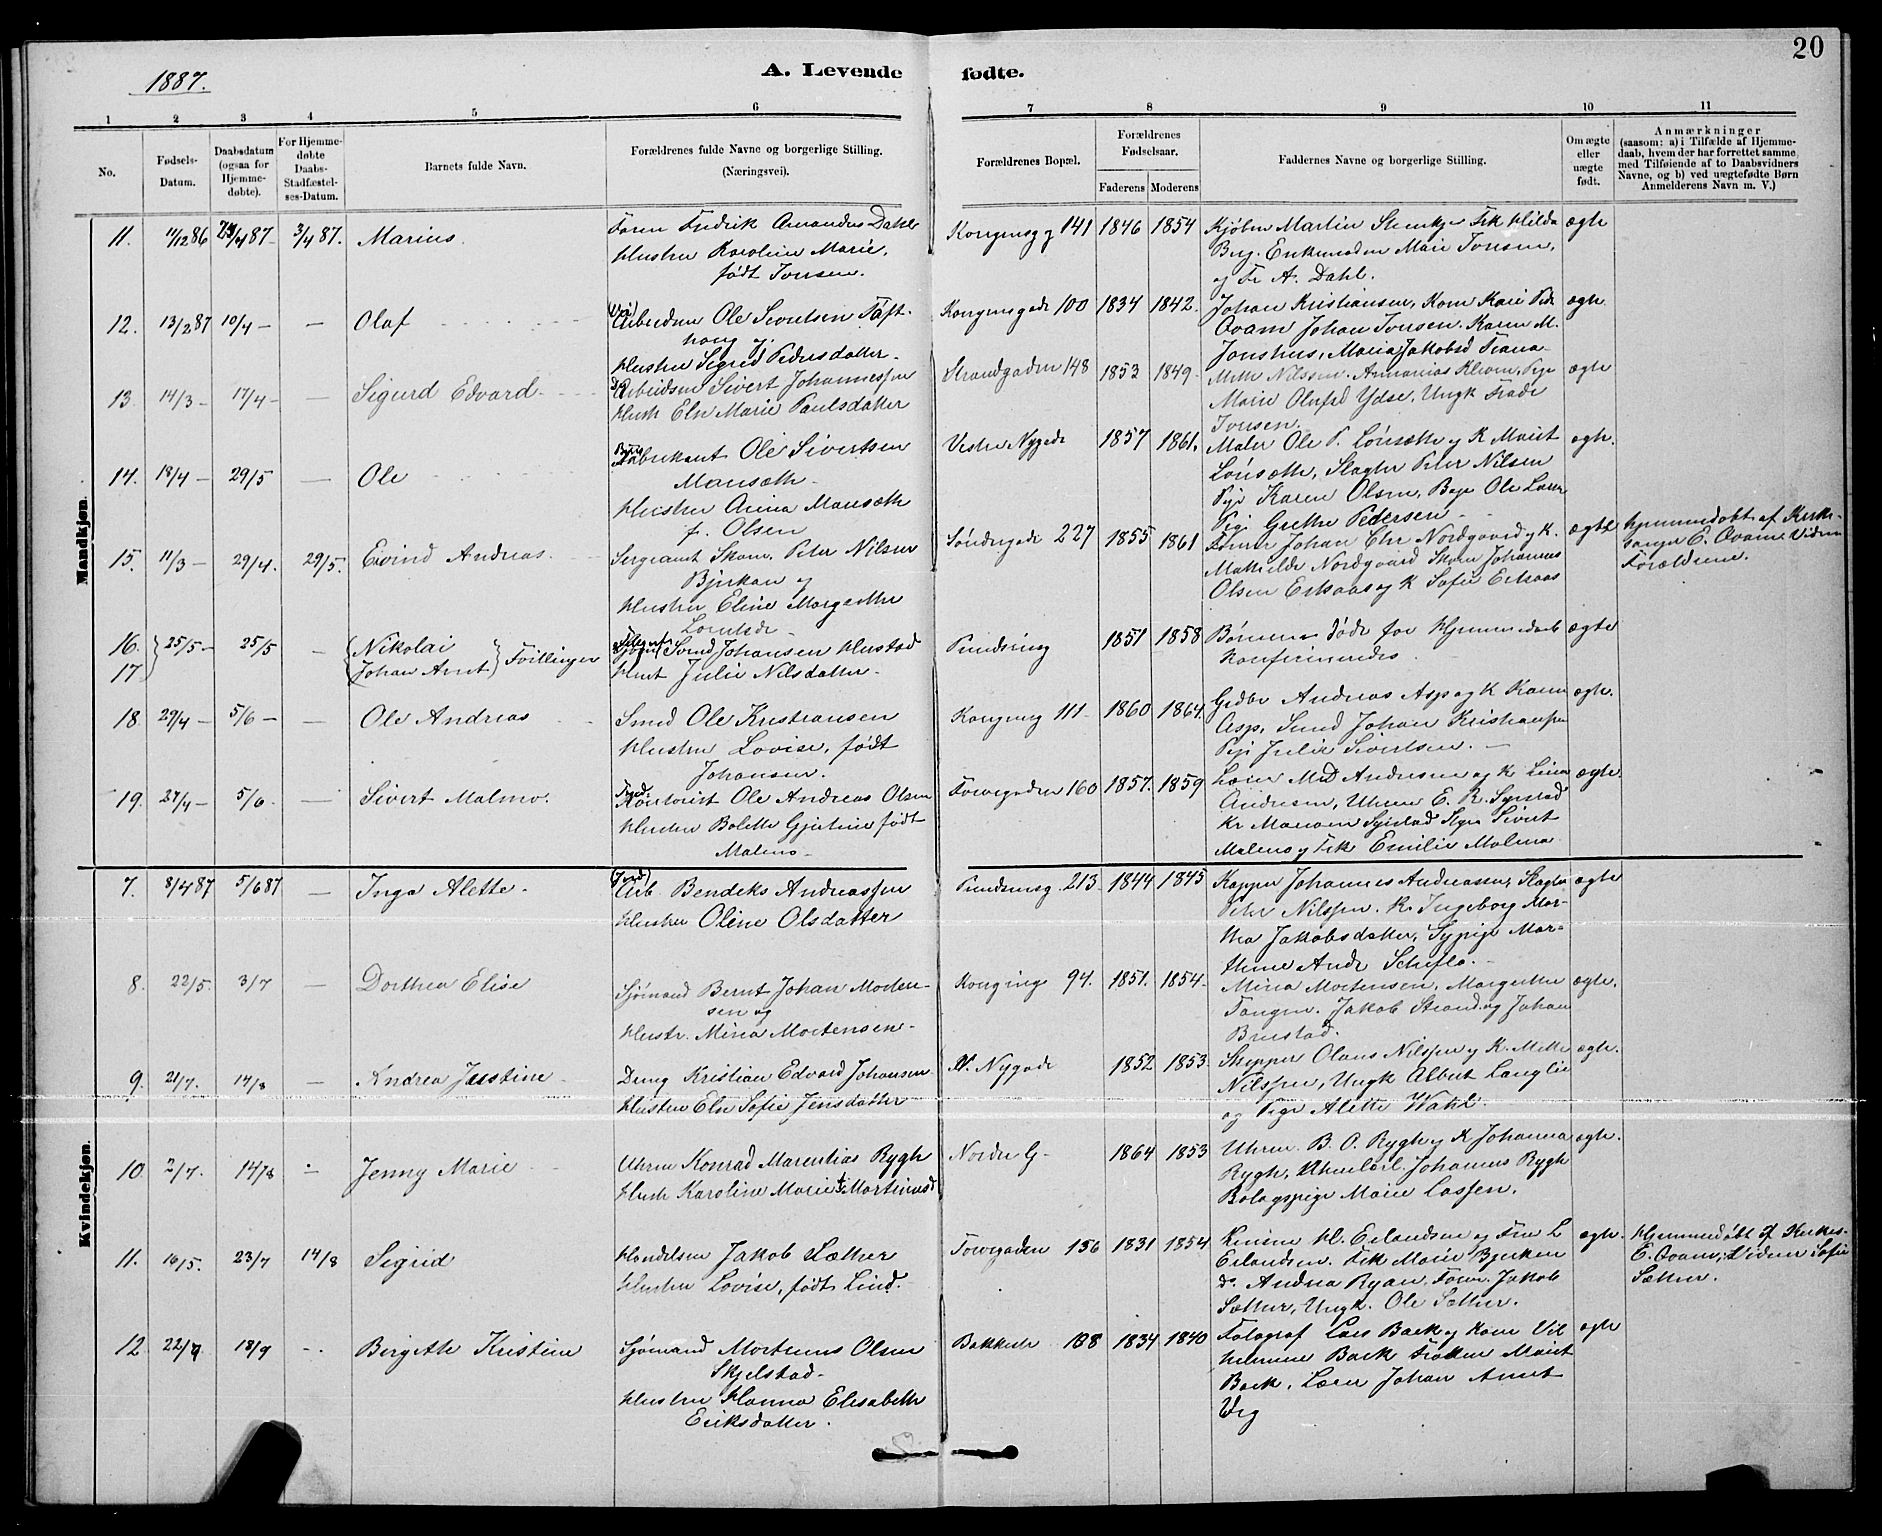 20
1887.
A. Levende fødte.
1 2 3 4 5 6 7 8 9 10 11
No.
Fødsels-Datum.
Daabsdatum (ogsaa for Hjemmedøbte).
For Hjemmedøbte Daabs-Stadfæstelses-Datum.
Barnets fulde Navn.
Forældrenes fulde Navne og borgerlige Stilling.
(Næringsvei).
Forældrenes Bopæl.
Forældrenes Fødselsaar.
Faderens Moderens
Faddernes Navne og borgerlige Stilling.
Om ægte eller uægte født.
Anmærkninger
(saasom: a) i Tilfælde af Hjemmedaab, hvem der har forrettet samme, med Tilføiende af to Daabsvidners Navne, og b) ved uægtefødte Børn Anmelderens Navn m. V.)
Mandkjøn.
11. 11/12 86 3/4 87. Marius.
Fredrik Amandus Dahl
Hustru Karoline Marie,
født Jonsen.
Kongensg 141 1846 1854
Martin Stenkjer Frk Hilda
Berg. Enkemaden Marie Jonsen,
og Fr A. Dahl.
ægte
12. 13/2 87 10/4 — — Olaf
Arbeidsm Ole Sivertsen
Hustru Sigrid Pedersdatter
Kongensgade 100 1834 1842.
Johan Kristiansen, Kone Kari
Ovam Johan Jonsen, Karen M.
Jonshus, Maria Jakobsd Trana
ægte
13. 14/3 — 17/4 — — Sigurd Edvard
Arbeidsm Sivert Johannessen
Hust Eln Marie Paulsdatter
Strandgaden 148 1853 1849
Nilssen. Ananias Kleven, Pige
Marie Olufsd Ydse, Ungk
Jonsen.
ægte
14. 18/4 — 29/5 — Ole
Fabrikant Ole Sivertsen
Mansæth
Hustru Anna Mansæth
f. Olsen
Vestre Nygade 1857 1861.
Maler Ole P. Lönsæth og K Marit
Lönsæth, Slagter Peter Nilsen
Pige Karen Olsen, Ole Larsen
Pig Grethe Pedersen
ægte.
15. 11/3 — 29/4. 29/5. Eivind Andreas
Sergeant Skom. Peter Nilsen
Bjerkan og
Hustru Eline Margrethe
Söndregade 227 1855 1861
Johan Chr Nordgaard og K.
Mathilde Nordgaard Skom Johannes
Olsen og K Sofie
ægte
Hjemmedøbt af Kirkesanger E. Ovam. Vidner
Forældrene.
16. 17 25/5 — 25/5 — Nikolai
Johan Arnt Tvillinger
Svend Johansen Hustad
Hust Julie Nilsdatter
1851 1858
Börnene döde før Hjemmedaab
konfirmeredes.
ægte
18. 29/4 — 5/6 — — Ole Andreas
Smed Ole Kristiansen
Hustru Lovise, født
Johansen.
Kongensg 111 1860 1864.
Andreas Asp og K Karen
Asp, Smed Johan Kristiansen
Pige Julie Sivertsen.
ægte.
19. 27/4 — 5/6 — Sivert Malmo.
Ole Andreas Olsen
Hustru Bolette Gjertine født
Malmo
Tovegaden 160 1857. 1859
Andresen og K Lina
Andresen, Uhrm E. R. Syrstad
Kr Mariane Syrstad Sivert
Malmo og Frk Emilie Malmo
ægte.
Kvindekjøn.
7. 8/4 87 5/6 87 — Inga Alette.
Arb. Bendiks Andreassen
Hustru Oline Olsdatter
213 1844 1845
Johannes Andreassen, Slagter
Peter Nilssen. K. Ingeborg Martha Jakobsdatter, Sypige
Scheflo.
ægte
8. 22/5. 3/7 — Dorthea Elise
Sjømand Bernt Johan Mortensen og
Hustr. Mina Mortensen
94. 1851. 1854
Mina Mortensen, Margrethe
Tangen. Jakob Strand og Johan
Brustad.
ægte.
9. 21/7. 14/8 — Andrea Justine
Kristian Edvard Johansen
Hustru Eln Sofie Jensdatter
V. Nygade 1852 1853
Skipper Olaus Nilssen og K. Mette
Nilssen, Ungk Albert Langlie
og Pige Alette Wahl.
ægte.
10. 2/7. 14/8 — Jenny Marie
Uhrm Konrad Marentias Rygh
Hust Karoline Marie Martinusd
Nordre G 1864 1853
Uhrm. B. O. Rygh og K Johanna
Rygh, Johannes Rygh
Marie Lassen.
ægte.
11. 16/5. 23/7 14/8 Sigrid
Handelsm Jakob Sæther
Hustru Lovise, født Lind.
Tovegaden 156 1831 1854
H. Erlandsen og Fru L
Erlandsen. Frk Marie Bjerken
do. Andrea Ryan, Jakob
Sæther, Ungk. Ole Sæther.
ægte.
Hjemmedøbt af Kirkes.
E. Ovam, Vidne Sofie
Sæther.
12. 22/7 18/9 — Birgitte Kristine
Sjømand Mortinus Olsen
Skjelstad
Hustru Hanna Elisabeth
Eriksdatter.
188 1834 1840
Fotograf Lars Baek og Kone Vilhelmine Baek Frøken Marit
Baek. Lærer Johan Arnet
Veg
ægte